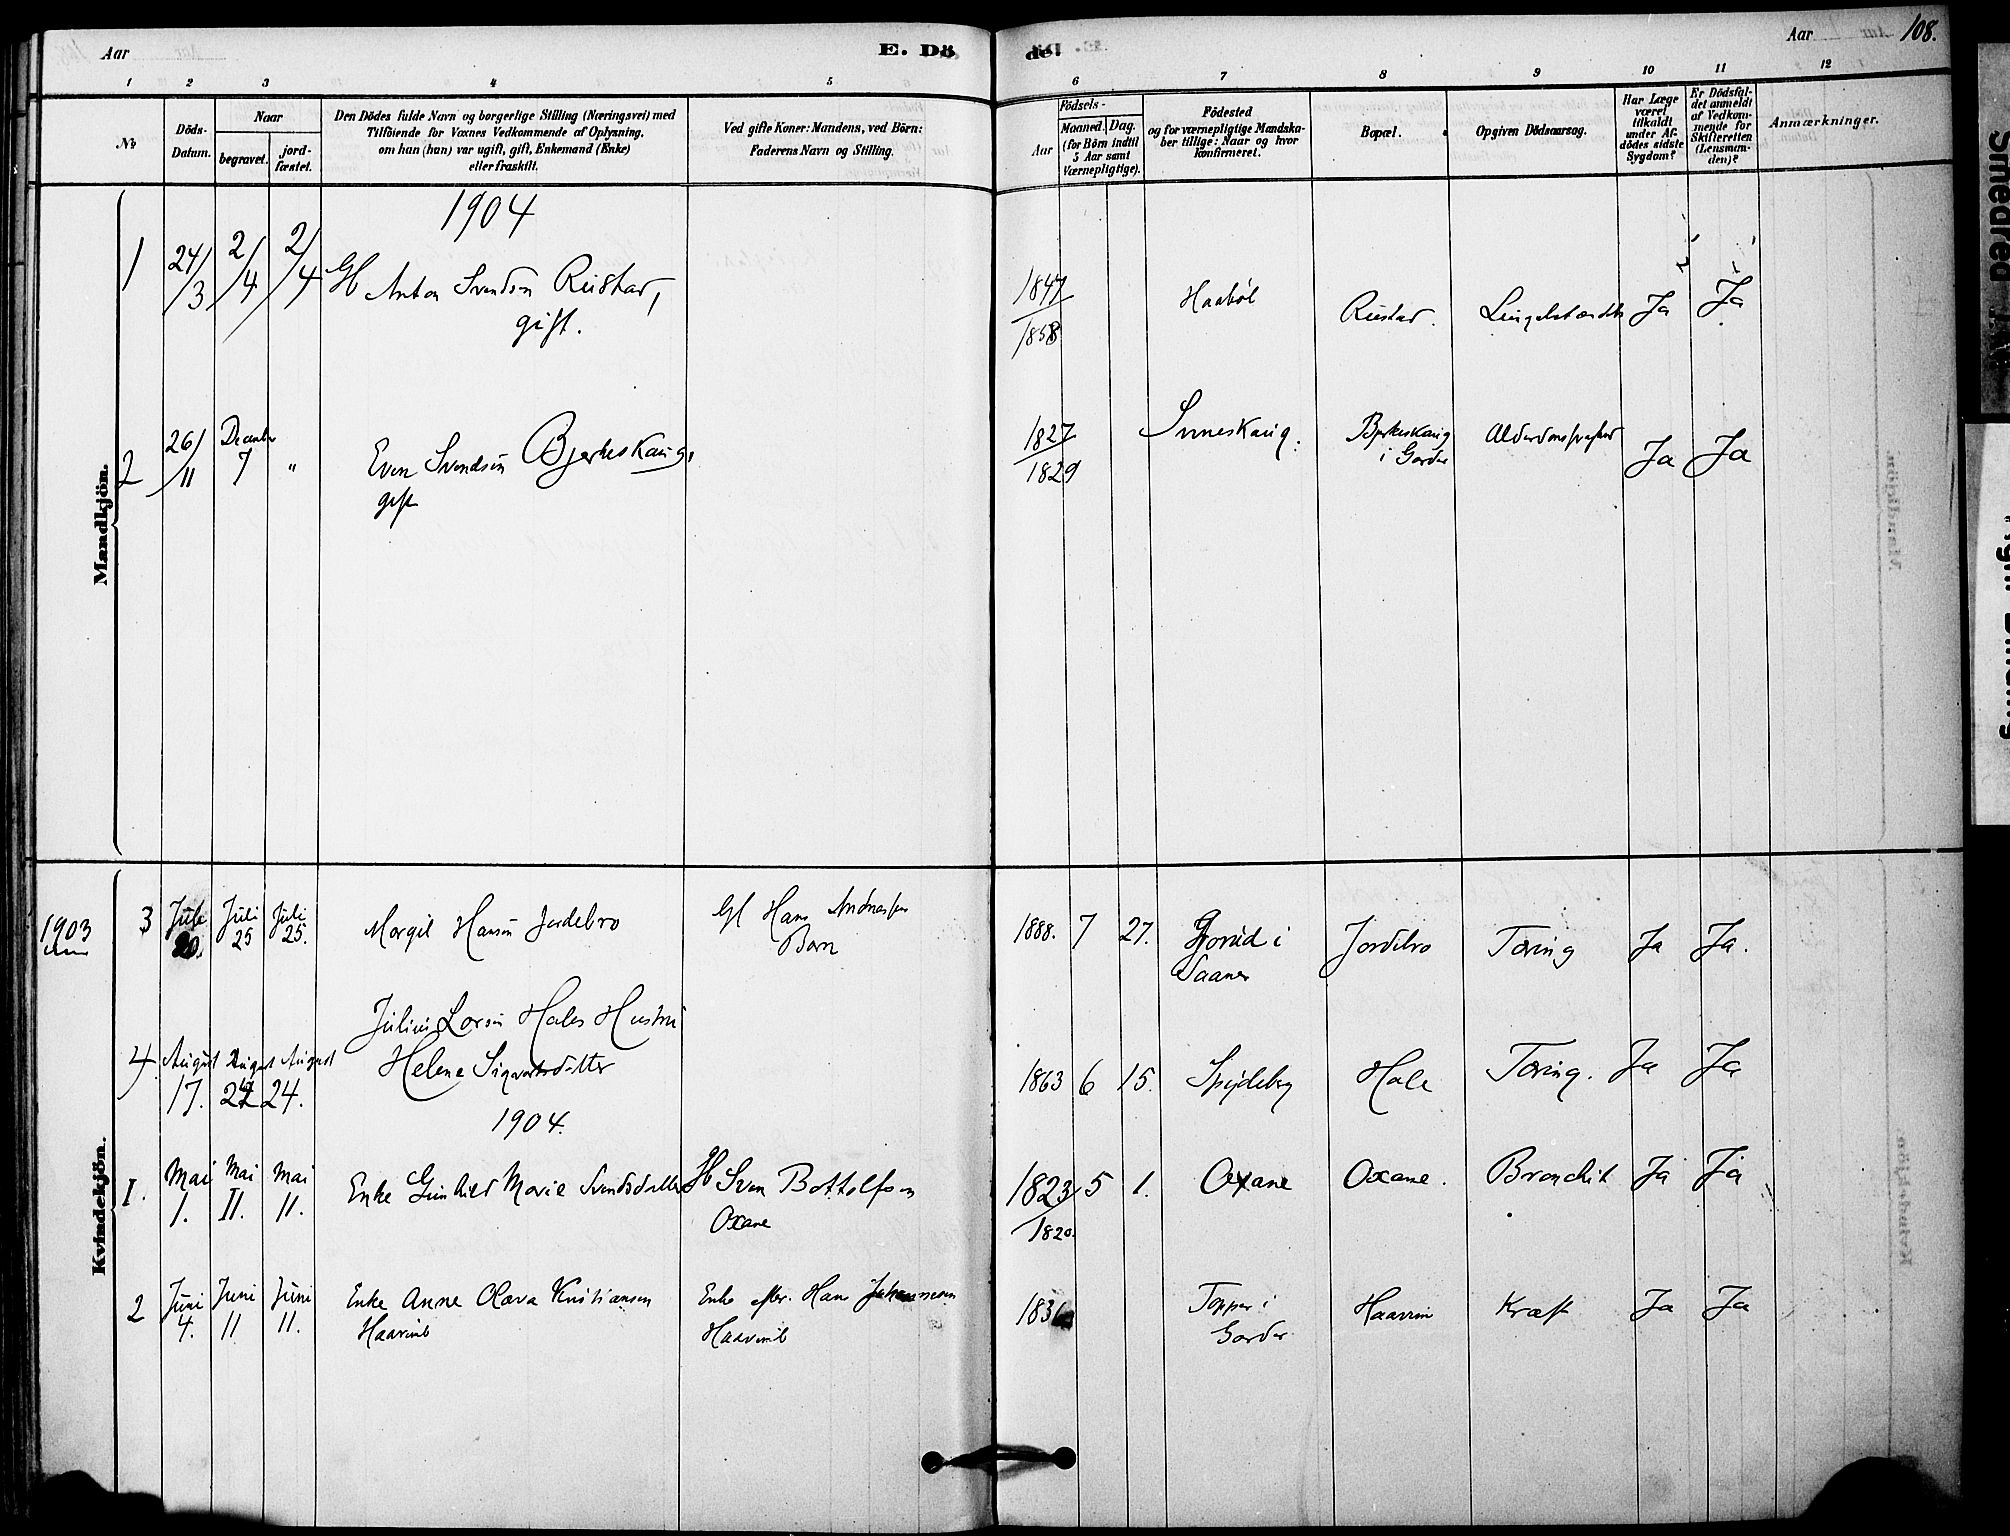 Aar
E. Dö
de!
Aar
108.
1 2 3 4 5 6 7 8 9 10 11 12
No
Döds-
Datum.
Naar
begravet.
jord-
fæstet.
Den Dödes fulde Navn og borgerlige Stilling (Næringsvei) med
Tilföiende for Voxnes Vedkommende af Oplysning,
om han (hun) var ugift, gift, Enkemand (Enke)
eller fraskilt.
Ved gifte Koner: Mandens, ved Börn:
Faderens Navn og Stilling.
Födsels-
Aar
Maaned.
Dag.
(for Börn indtil
5 Aar samt
Værnepligtige).
Födested
og for værnepligtige Mandska-
ber tillige: Naar og hvor
konfirmeret.
Bopæl.
Opgiven Dödsaarsag.
Har Læge
været
tilkaldt
under Af-
dödes sidste
Sygdom?
Er Dödsfal-
det anmeldt
af Vedkom-
mende for
Skifteretten
(Lensman-
den)?
Anmærkninger.
Mandkjön.
1904
1 24/3 2/4 2/4 Gl Anton Svendsen Rustad,
gift.
1847
1858
Haabøl Rustad. Ja Ja
2 26/11 December 7 "
Even Svendsen Bjerkeskaug,
gift
1827
1829
Bjerkeskaug
i Garder
Ja Ja
Kvindekjön.
1903
3 Juli 20. Juli 25 Juli 25. Margit Hansen Jordebro
Gl Hans Andresen
Barn
1888. 7 27. Grorud i
Saaner
Jordebro Tæring Ja Ja.
Julius Larsen Hales Hustru
4 August 17. August 24 August 24. Helene Sigvartsdatter
1863 6 15. Spydeberg Hale Tæring. Ja Ja
1904.
1. Mai 1. Mai 11. Mai 11. Enke Gunhild Marie Svendsdatter
Gl Sven Bottolfsen
Oxane
1823 5 1.
1820.
Oxane Oxane. Bronchit Ja Ja
2 Juni 4. Juni 11 Juni 11. Enke Anne Olava Kristiansen
Haavind
Enke efter Hans Johannesen
Haavind
Topper i
Garder
Kræft Ja Ja
Smedred